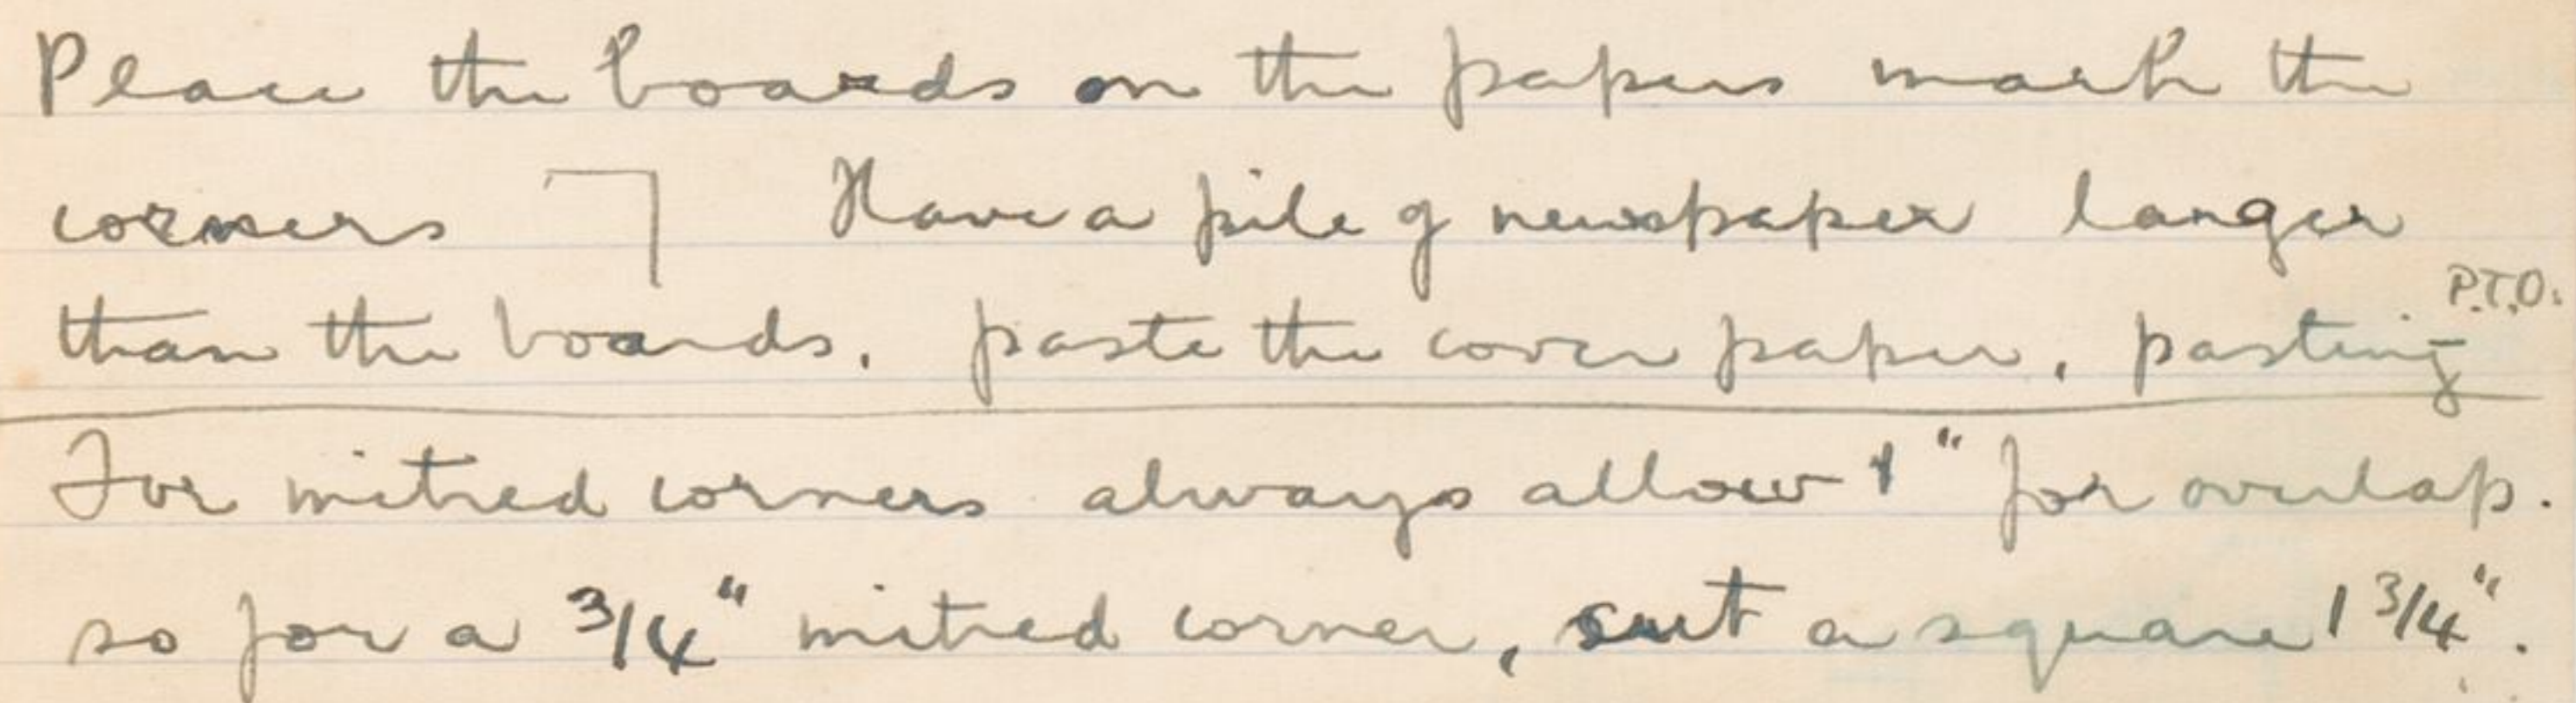 Place the boards on the papers mark the
corners Have a pile of newspaper larger
than the boards. paste the cover paper, pasting
P.T.O.
For mitred corners always allow 1" for overlap.
so for a 3/4" mitred corner, cut a square 1 3/4".